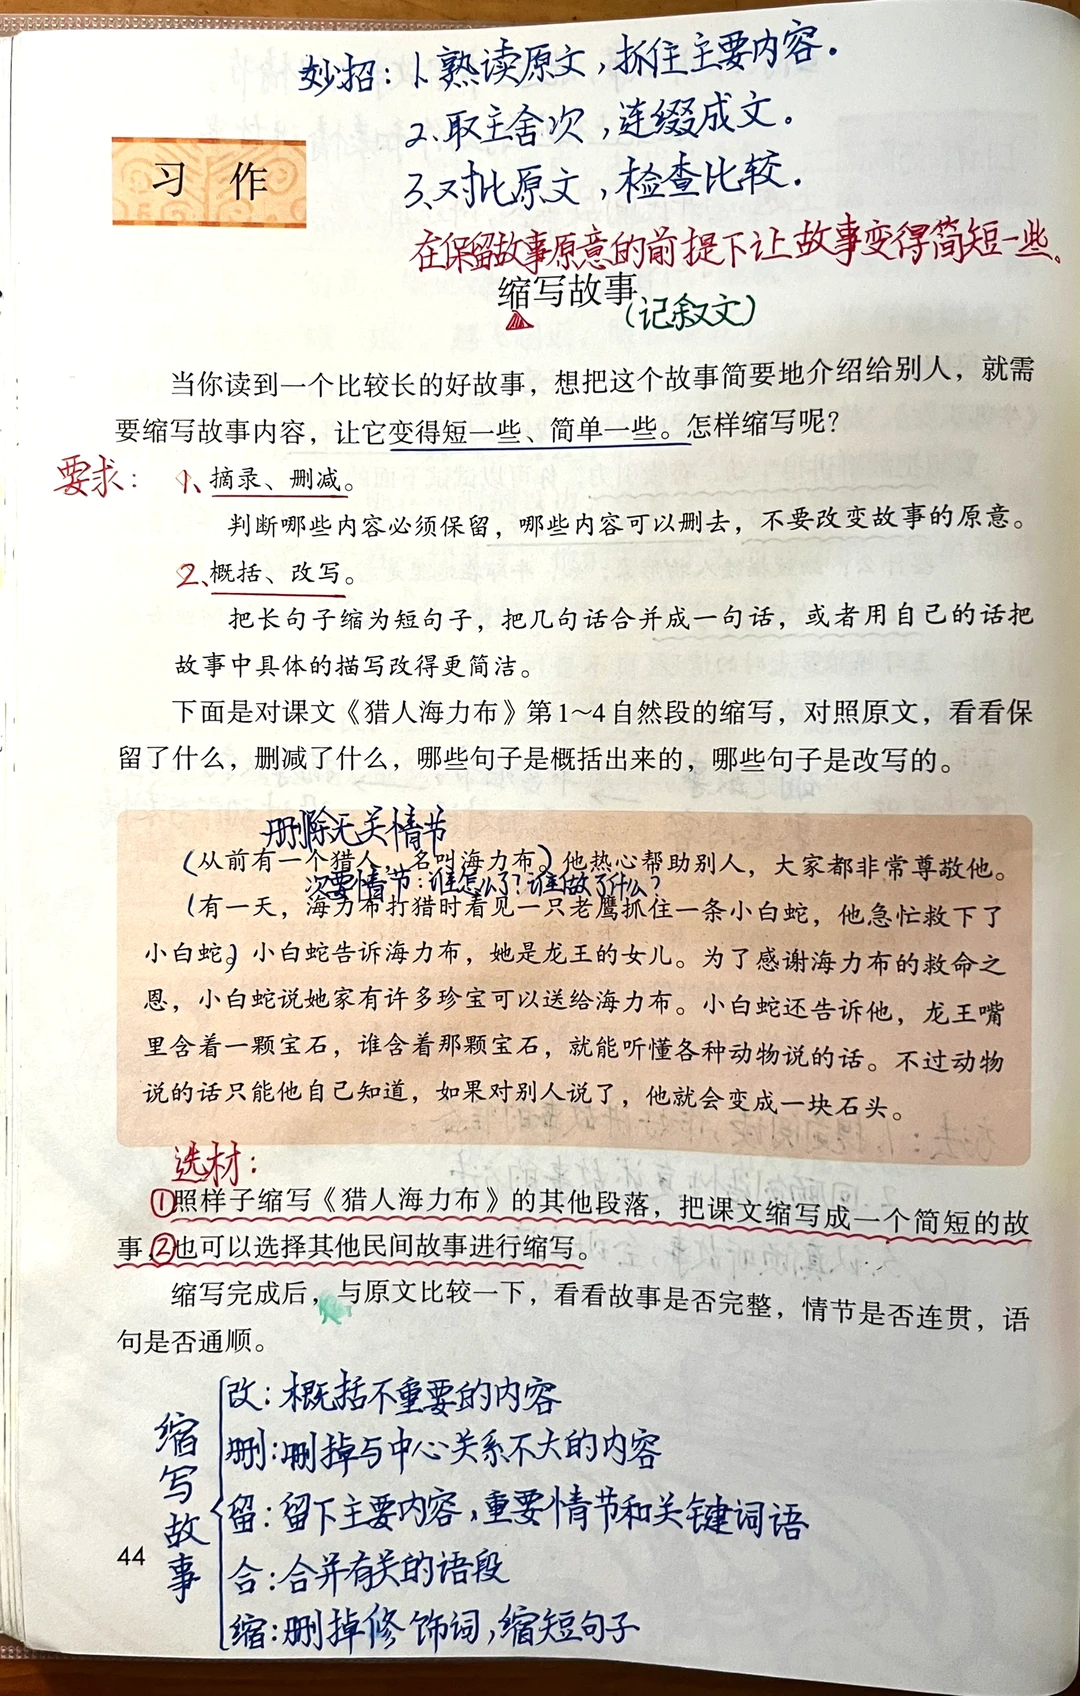 妙招：1、熟读原文，抓住主要内容。
2、取主舍次，连缀成文。
3、对比原文，检查比较。
习 作
在保留故事原意的前提下让故事变得简短一些。
缩写故事
（记叙文）
当你读到一个比较长的好故事，想把这个故事简要地介绍给别人，就需
要缩写故事内容，让它变得短一些、简单一些。怎样缩写呢？
要求：1、摘录、删减。
判断哪些内容必须保留，哪些内容可以删去，不要改变故事的原意。
2、概括、改写。
把长句子缩为短句子，把几句话合并成一句话，或者用自己的话把
故事中具体的描写改得更简洁。
下面是对课文《猎人海力布》第1~4自然段的缩写，对照原文，看看保
留了什么，删减了什么，哪些句子是概括出来的，哪些句子是改写的。
删除无关情节
（从前有一个猎人，名叫海力布）他热心帮助别人，大家都非常尊敬他。
次要情节：谁怎么了？谁做了什么？
（有一天，海力布打猎时看见一只老鹰抓住一条小白蛇，他急忙救下了
小白蛇。）小白蛇告诉海力布，她是龙王的女儿。为了感谢海力布的救命之
恩，小白蛇说她家有许多珍宝可以送给海力布。小白蛇还告诉他，龙王嘴
里含着一颗宝石，谁含着那颗宝石，就能听懂各种动物说的话。不过动物
说的话只能他自己知道，如果对别人说了，他就会变成一块石头。
选材：
①照样子缩写《猎人海力布》的其他段落，把课文缩写成一个简短的故
事，②也可以选择其他民间故事进行缩写。
缩写完成后，与原文比较一下，看看故事是否完整，情节是否连贯，语
句是否通顺。
缩写故事
改：概括不重要的内容
删：删掉与中心关系不大的内容
留：留下主要内容，重要情节和关键词语
合：合并有关的语段
缩：删掉修饰词，缩短句子
44